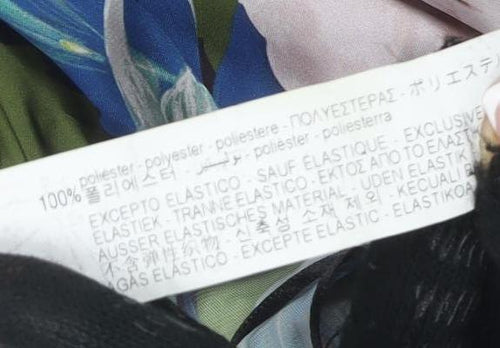 poliéster - polyester - poliestere - ΠΟΛΥΕΣΤΕΡΑΣ - ポリエステ
100% 폴리에스터 - بوليستر - poliéster - poliesterra
EXCEPTO ELÁSTICO - SAUF ÉLASTIQUE - EXCLUSIVE
ELASTIEK - TRANNE ELASTICO - ΕΚΤΟΣ ΑΠΟ ΤΟ ΕΛΑΣΤ
AUSSER ELASTISCHES MATERIAL - UDEN ELASTIK
不含弹性织物 - 신축성 소재 제외 - KECUALI B
AGAS ELÁSTICO - EXCEPTE ELÀSTIC - ELASTIKOA